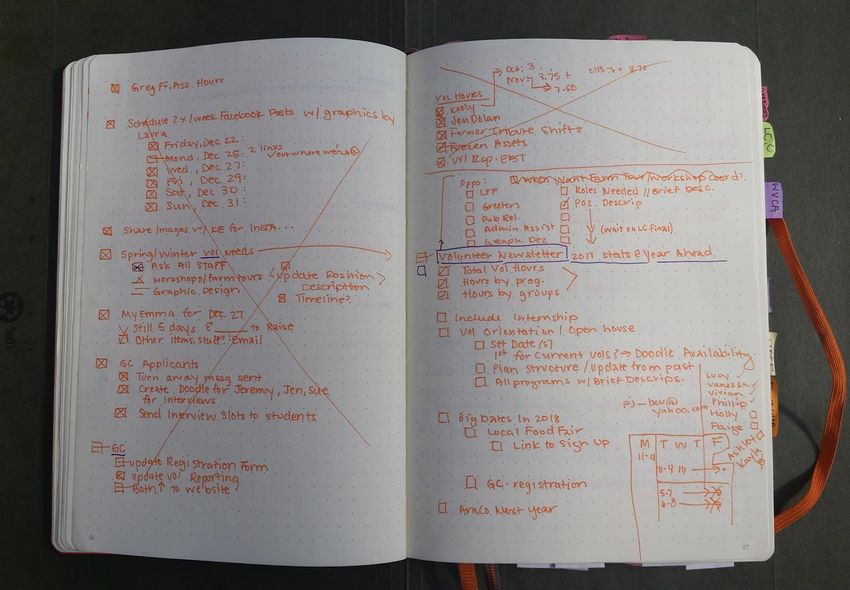 Greg Fr. Ass. Hours
Schedule 2x/week Facebook Posts w/ graphics by
Laura
Friday, Dec 22:
Mond, Dec 25: 2 links
Wed, Dec 27:
Fri, Dec 29:
Sat, Dec 30:
Sun, Dec 31:
Share Images w/ KE for Insta...
Spring/Winter Vol Needs
Ask All Staff
Workshops/Farm tours
Graphic Design
Update Position
Description
Timeline?
My Emma for Dec. 27
Still 5 days. & ____ to Raise
Other items, staff? Email
GC Applicants
Turn away mssg sent
Create Doodle for Jeremy, Jen, Sue
for Interviews
Send Interview Slots to students
GC
Update Registration Form
Update Vol Reporting
Both ↑ to website
56
Oct: 3
Nov: 3.75 +
7.50
2:15-6 = 3.75
Vol Hours
Keely
Jen Dolan
Farmer Tribute Shifts
Frozen Assets
Vol Rep. EFST
Opps:
Want Farm Tour/Workshop Coord?
LFF
Greeters
Pub Rel.
Admin Assist
Graph. Dez
Roles Needed // Brief Desc.
Poz. Descrip
(Wait on LG final)
Volunteer Newsletter 2017 Stats & Year Ahead
Total Vol Hours
Hours by prog.
Hours by groups.
Include Internship
Vol Orientation / Open house
Set Date(s)
1st for Current Vols? → Doodle Availability
Plan Structure / Update from past
All programs w/ Brief Descrips.
Lucy
Vanessa
Vivian
Phillip
Holly
Paige
Ashley
Kayla
pj-bev@
yahoo.com
Big Dates In 2018
Local Food Fair
Link to Sign Up
GC-registration
AmCo Next Year
M T W T F
11-4
10-4 10
5-7
6-8
57
LC/C
WVCA